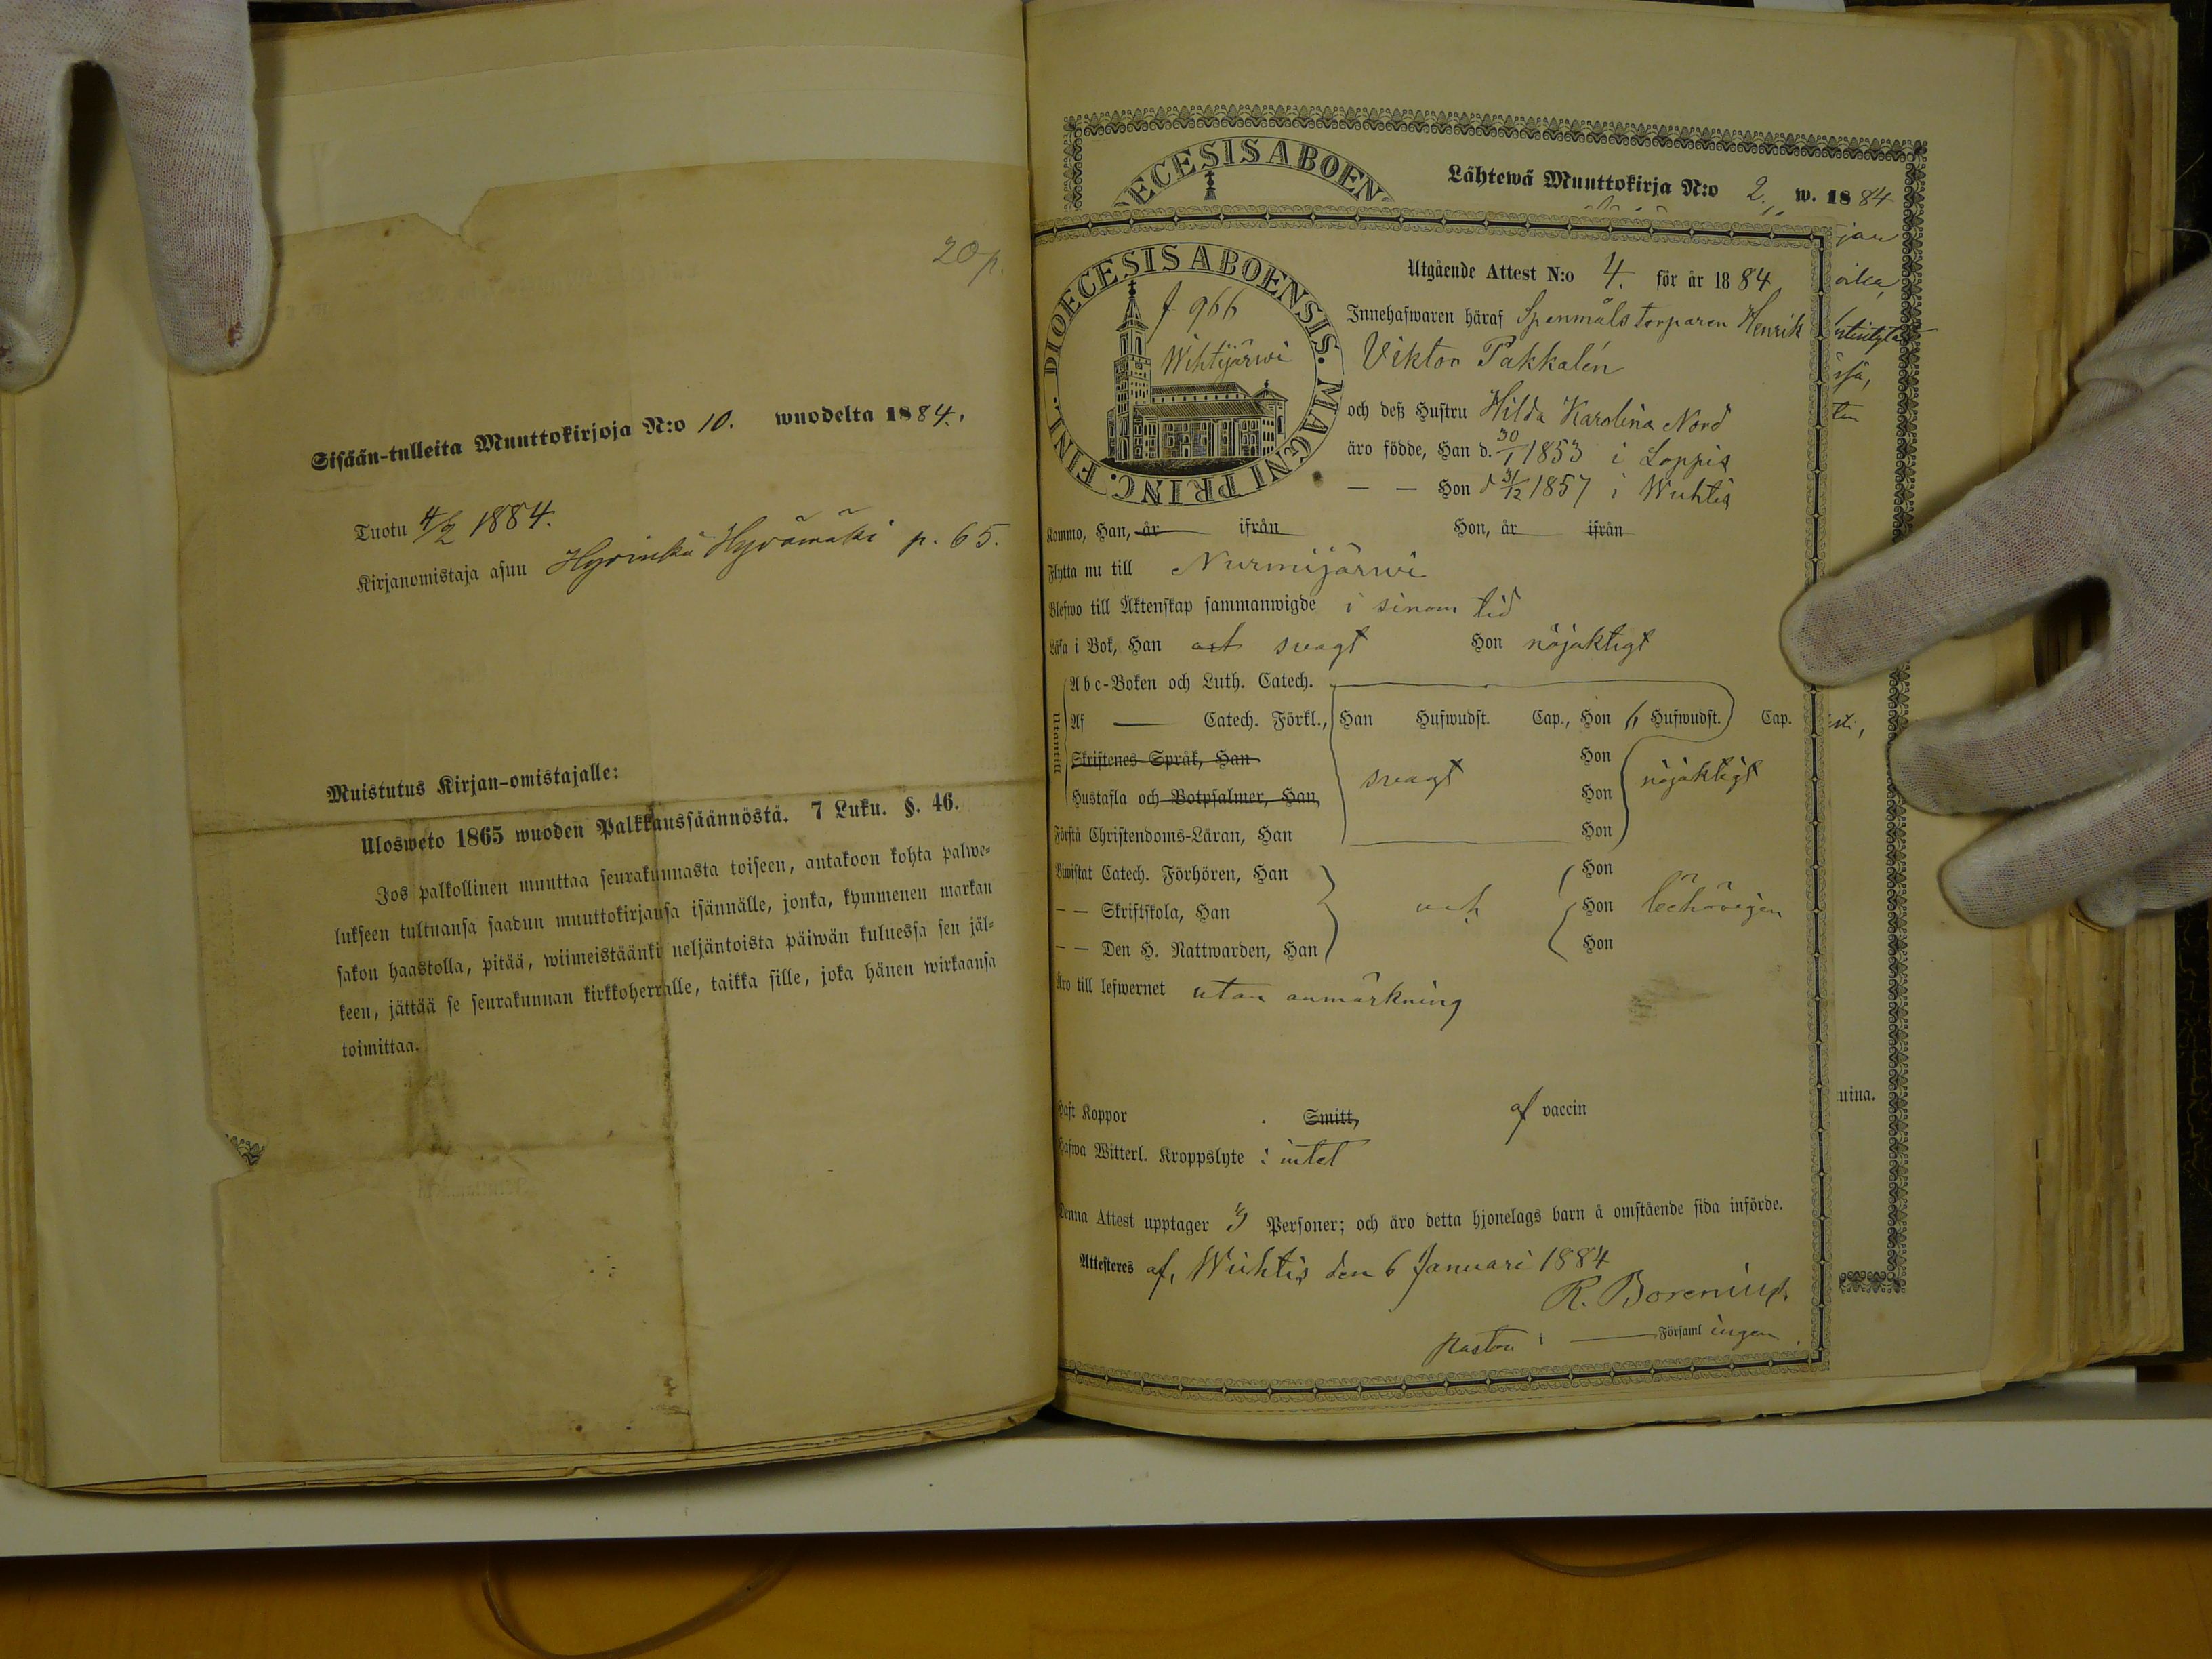 20 p.
Sisään-tulleita Muuttokirjoja N:o 10. wuodelta 1884.
Tuotu 4/2 1884.
Kirjanomistaja asuu Hyvinkä Hyvämäki p. 65.
Muistutus Kirjan-omistajalle:
Ulosweto 1865 wuoden Palkkaussäännöstä. 7 Luku. §. 46.
Jos palkollinen muuttaa seurakunnasta toiseen, antakoon kohta palwe-
lukseen tultuansa saadun muuttokirjansa isännälle, jonka, kymmenen markan
sakon haastolla, pitää, wiimeistäänki neljäntoista päiwän kuluessa sen jäl-
keen, jättää se seurakunnan kirkkoherralle, taikka sille, joka hänen wirkaansa
toimittaa.
DIOECESIS ABOEN
Lähtewä Muuttokirja N:o 2. w. 1884
DIOECESIS ABOENSIS. MAGNI PRINC. FINL.
f 966
Wihtijärwi
Utgående Attest N:o 4. för år 1884
Innehafwaren häraf Spenmåls torparen Henrik
Viktor Pakkalén
och deß Hustru Hilda Karolina Nord
äro födde, Han d. 30/1 1853 i Loppis
— — Hon d 31/12 1857 i Wichtis
Kommo, Han, år ifrån Hon, år ifrån
Flytta nu till Nurmijärwi
Blefwo till Äktenskap sammanwigde i sinom tid
Läsa i Bok, Han svagt Hon nöjaktigt
Utantill
Abc-Boken och Luth. Catech.
Af — Catech. Förkl., Han Hufwudst. Cap., Hon 6 Hufwudst. Cap.
Skriftenes Språk, Han Hon
svagt nöjaktigt
Hustafla och Botpsalmer, Han, Hon
Förstå Christendoms-Läran, Han Hon
Biwistat Catech. Förhören, Han Hon
— — Skriftskola, Han och Hon behörigen
— — Den H. Nattwarden, Han Hon
Äro till lefwernet utan anmärkning
Haft Koppor Smitt, af vaccin
Hafwa Witterl. Kroppslyte : intet
Denna Attest upptager Personer; och äro detta hjonelags barn å omstående sida införde.
Attesteres af, Wichtis den 6 Januari 1884
R. Borenius.
Pastor i — Församlingen.
jan
oika,
ten
uina.